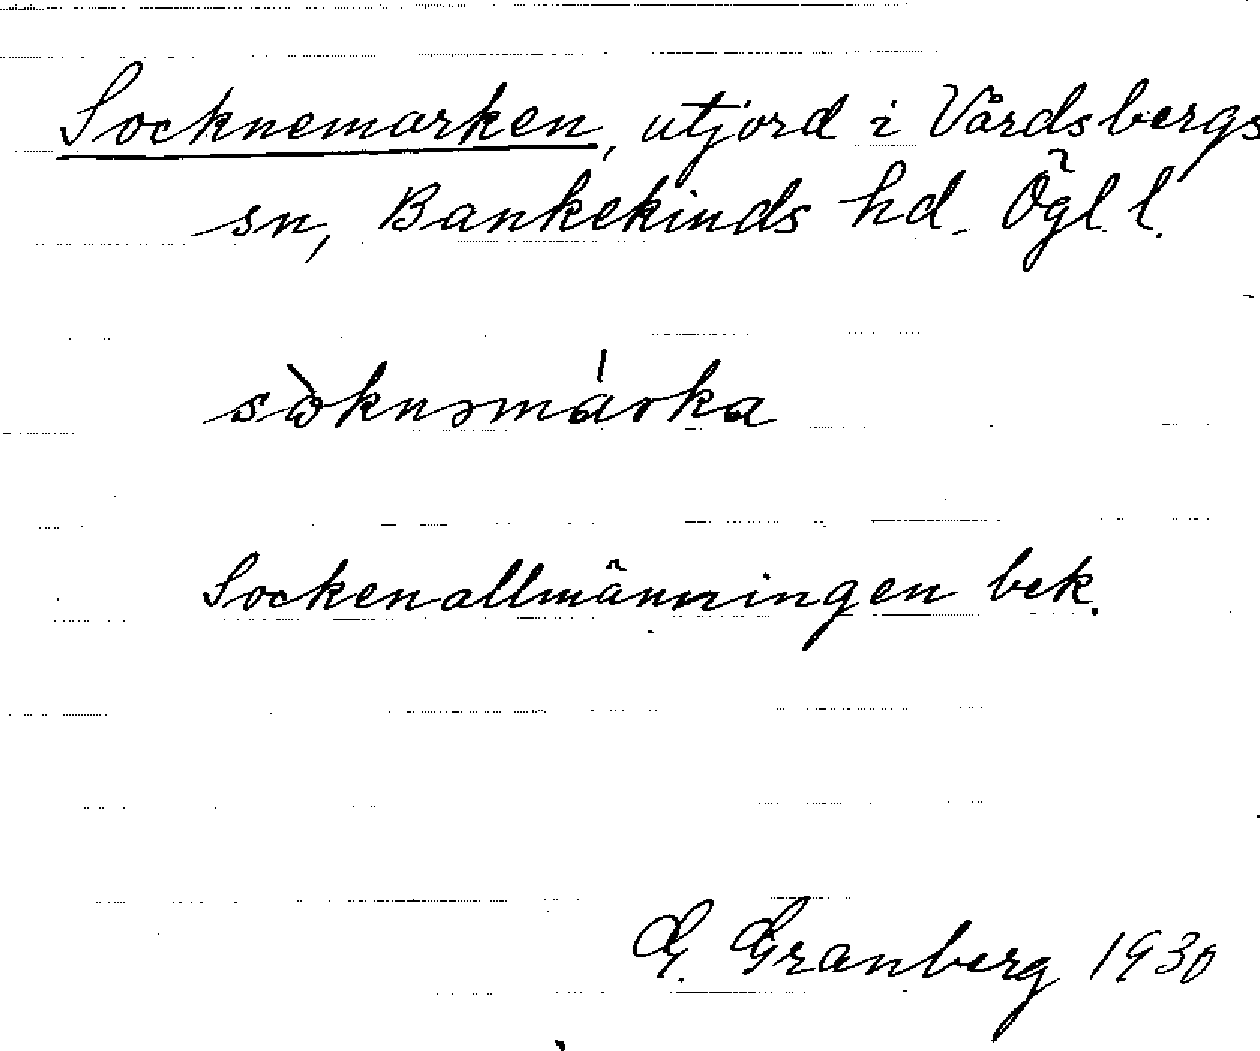 Socknemarken, utjord i Vårdsbergs
sn, Bankekinds hd. Ögl l.
sòknəmárka
Sockenallmänningen bek.
G. Granberg 1930